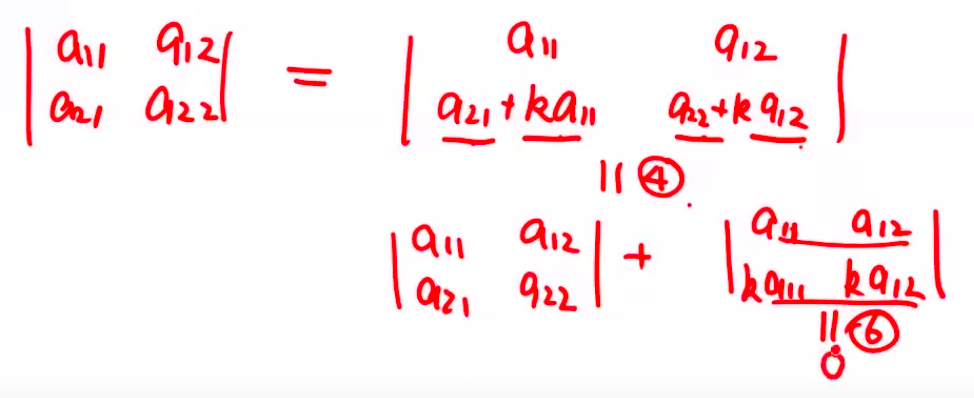 | a₁₁ a₁₂ | = | a₁₁ a₁₂ |
| a₂₁ a₂₂ | | a₂₁+ka₁₁ a₂₂+ka₁₂ |
|| ④
| a₁₁ a₁₂ | + | a₁₁ a₁₂ |
| a₂₁ a₂₂ | | ka₁₁ ka₁₂ |
|| ⑥
0